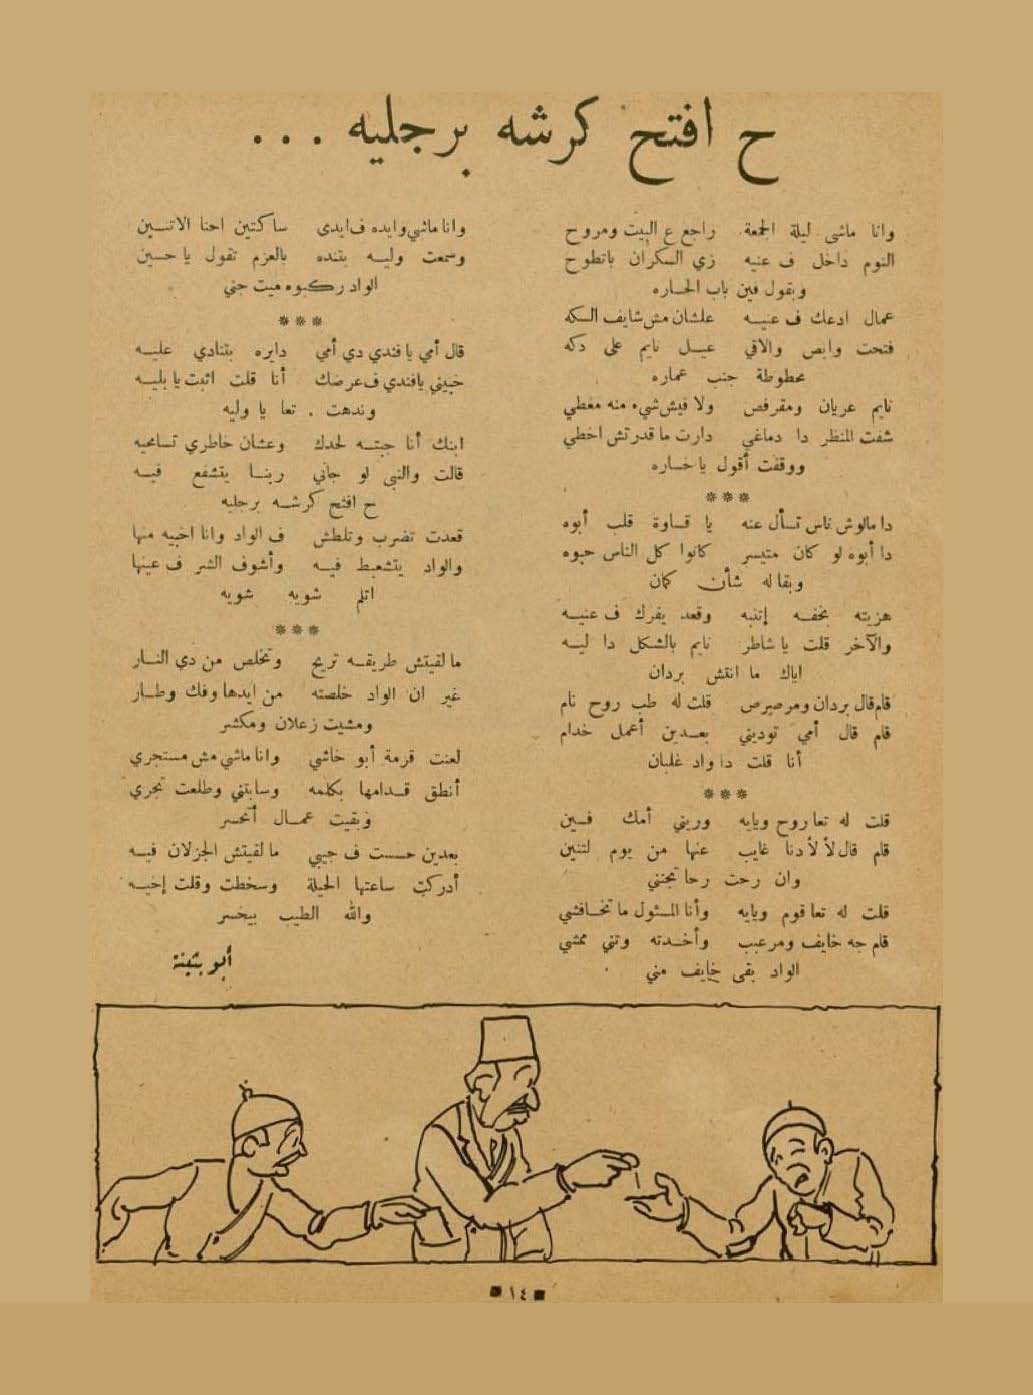 ح افتح كرشه برجليه ...
وانا ماشى ليلة الجمعة راجع ع البيت ومروح
النوم داخل ف عنيه زي السكران باتطوح
وبقول فين باب الحاره
عمال ادعك ف عنيه علشان مش شايف السكه
فتحت وابص والاقي عيل نايم على دكه
محطوطة جنب عماره
نايم عريان ومقرفص ولا فيش شيء منه مغطي
شفت المنظر دا دماغي دارت ما قدرتش اخطي
ووقفت أقول يا خساره
***
دا مالوش ناس تسأل عنه يا قساوة قلب أبوه
دا أبوه لو كان متيسر كانوا كل الناس حبوه
وبقا له شأن كمان
هزيته بخفه إتنبه وقعد يفرك ف عنيه
والآخر قلت يا شاطر نايم بالشكل دا ليه
اياك ما انتش بردان
قام قال بردان ومرصرص قلت له طب روح نام
قام قال أمي توديني بعدين أعمل خدام
أنا قلت دا واد غلبان
***
قلت له تعا روح ويايه وريني أمك فين
قام قال لأ لأ دنا غايب عنها من يوم لتنين
وان رحت رحا تجنني
قلت له تعا قوم ويايه وأنا المسئول ما تخافشي
قام جه خايف ومرعب وأخدته وتني ممشي
الواد بقى خايف مني
وانا ماشي وايده ف ايدى ساكتين احنا الاتنين
وسمعت وليه بتنده بالعزم تقول يا حسين
الواد ركبوه ميت جني
***
قال أمي يا فندي دي أمي دايره بتنادي عليه
خبيني يافندي ف عرضك أنا قلت اثبت يا بليه
وندهت . تعا يا وليه
ابنك أنا جبته لحدك وعشان خاطري تسامحيه
قالت والنبي لو جاني ربنا يتشفع فيه
ح افتح كرشه برجليه
قعدت تضرب وتلطش ف الواد وانا اخبيه منها
والواد يتشعبط فيه وأشوف الشر ف عينها
اتلم شويه شويه
***
ما لقيتش طريقه تريح وتخلص من دي النار
غير ان الواد خلصته من ايدها وفك وطار
ومشيت زعلان ومكشر
لعنت قرمة أبو خاشي وانا ماشي مش مستجري
أنطق قدامها بكلمه وسابتني وطلعت تجري
وبقيت عمال أتحسر
بعدين حسست ف جيبي ما لقيتش الجزلان فيه
أدركت ساعتها الحيلة وسخطت وقلت إخيه
والله الطيب بيخسر
أبو بثينة
١٤